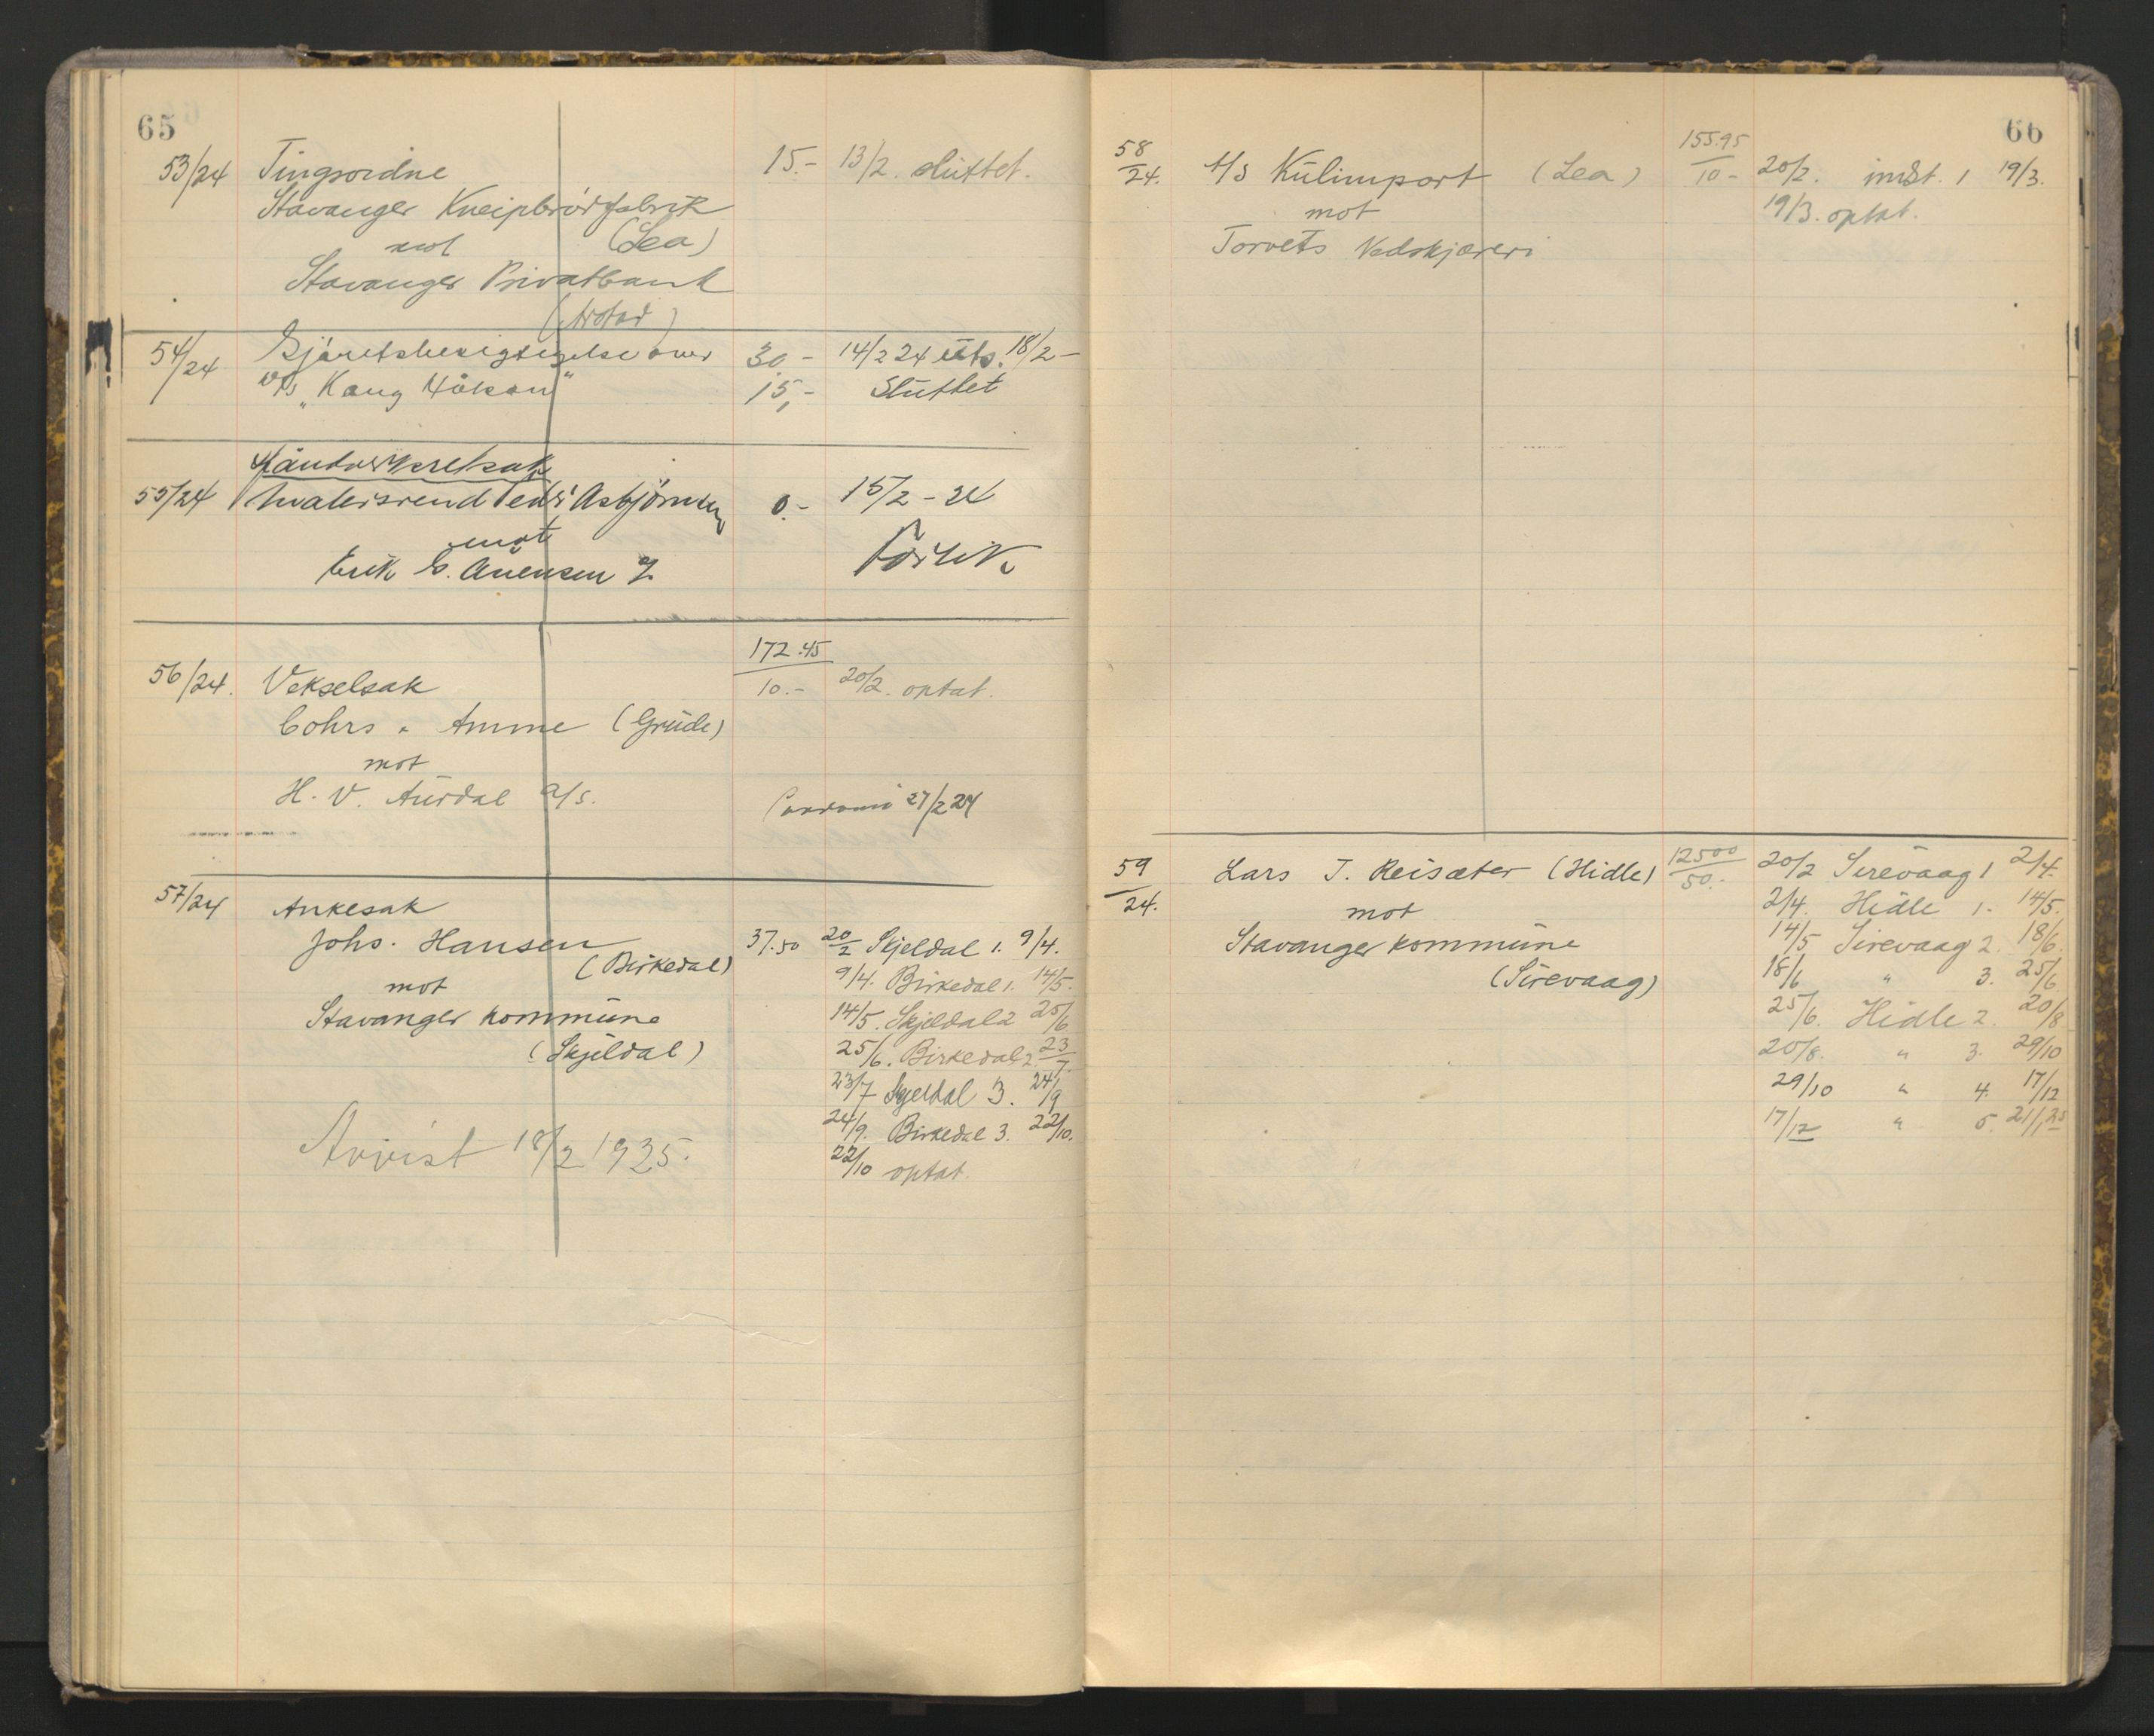 65
53/24 Tingsvidne 15.- 13/2. sluttet.
Stavanger Kneipbrödfabrik
mot (Lea)
Stavanger Privatbank
54/24 Sjöretsbesigtigelse over 30.- 14/2 24 uts. 18/2 -
"Kong Håkon" 15,- Sluttet
55/24 Asbjörnsen 0.- 15/2 - 24
mot
Erik Forlik
172.45
56/24. Vekselsak 10.- 20/2. optat.
Cohrs & Amme (Grude)
mot
H. V. Aurdal A/S.
27/2 24
57/24 Ankesak
Johs. Hansen 37.50 20/2 Skjeldal 1. 9/4.
(Birkedal) 9/4. Birkedal 1. 14/5.
mot
Stavanger kommune 14/5. Skjeldal 2 25/6
(Skjeldal) 25/6. Birkedal 2 23/7.
23/7 Skjeldal 3. 24/9
24/9. Birkedal 3. 22/10.
Avvist 18/2 1925. 22/10 optat.
66
155.95
58/24. A/S Kulimport (Lea) 10- 20/2. imst. 1 19/3.
mot 19/3. optat.
Torvets Vedskjæreri
59/24. Lars T. Reisæter (Hidle) 12500/50.- 20/2 Sirevaag 1 2/4.
mot 2/4. Hidle 1. 14/5.
Stavanger kommune 14/5 Sirevaag 2. 18/6.
(Sirevaag) 18/6 " 3. 25/6
25/6. Hidle 2. 20/8
20/8. " 3. 29/10
29/10 " 4. 17/12
17/12 " 5. 21/1 25